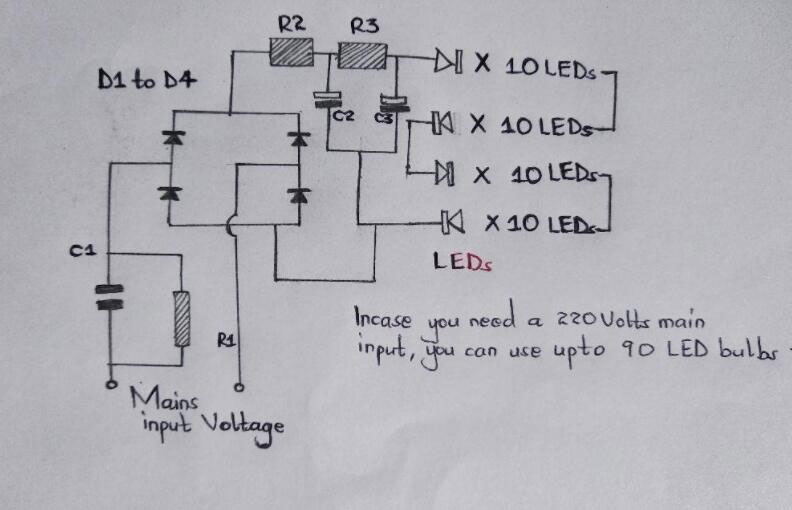 R2 R3
D1 to D4
X 10 LEDs
C2 C3
X 10 LEDs
X 10 LEDs
X 10 LEDs
C1
LEDs
R1
Incase you need a 220 Volts main
input, you can use upto 90 LED bulbs
Mains
input Voltage